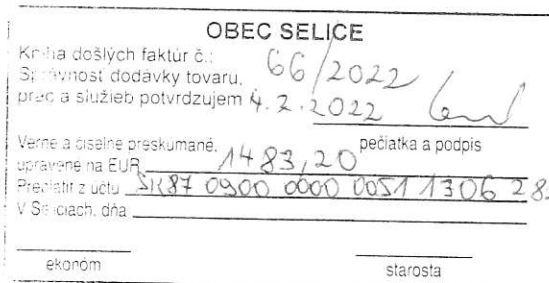 OBEC SELICE
Kniha došlých faktúr č.: 66/2022
Správnosť dodávky tovaru,
prác a služieb potvrdzujem 4.2.2022
pečiatka a podpis
Verne a číselne preskúmané,
upravené na EUR 1483,20
Preplatiť z účtu SK87 0900 0000 0051 1306 28
V Seliciach, dňa
ekonóm
starosta